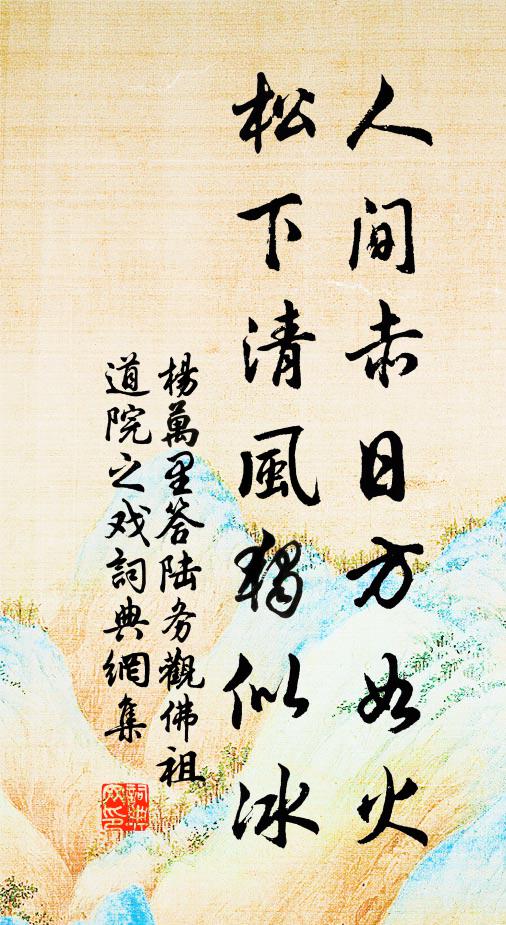 人間赤日方如火
松下清風獨似冰
楊萬里答陸务觀佛祖
道院之戏詞典網集